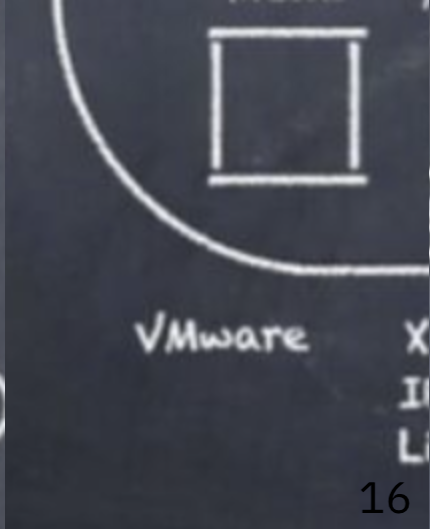 VMware
X
Li
16